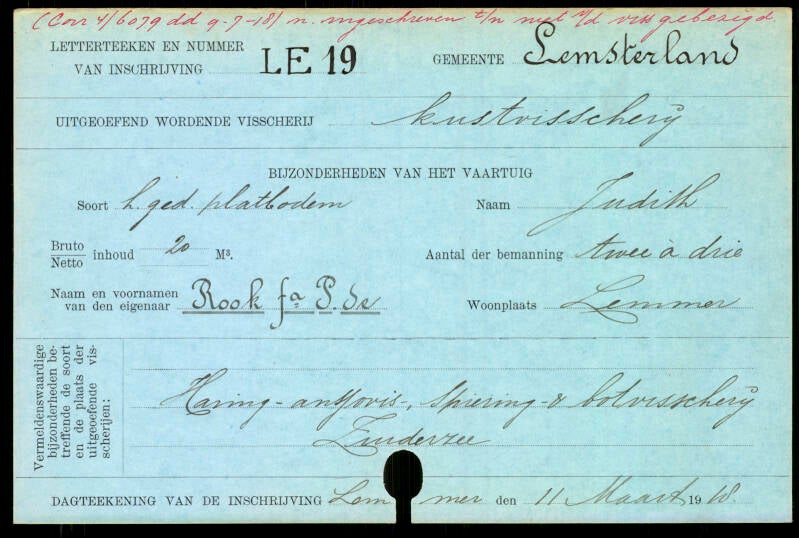 (Corr 4/6079 dd 9-7-18) n. ingeschreven t/n met v/d viss gebezigd.
LETTERTEEKEN EN NUMMER
VAN INSCHRIJVING LE 19 GEMEENTE Lemsterland
UITGEOEFEND WORDENDE VISSCHERIJ kustvisscherij
BIJZONDERHEDEN VAN HET VAARTUIG
Soort h. ged. platbodem Naam Judith
Bruto
Netto inhoud 20 M³. Aantal der bemanning twee à drie
Naam en voornamen
van den eigenaar Rook fa P. de Woonplaats Lemmer
Vermeldenswaardige
bijzonderheden be-
treffende de soort
en de plaats der
uitgeoefende vis-
scherijen:
Haring- ansjovis-, Spiering- & botvisscherij
Zuiderzee
DAGTEEKENING VAN DE INSCHRIJVING Lemmer den 11 Maart 1918.